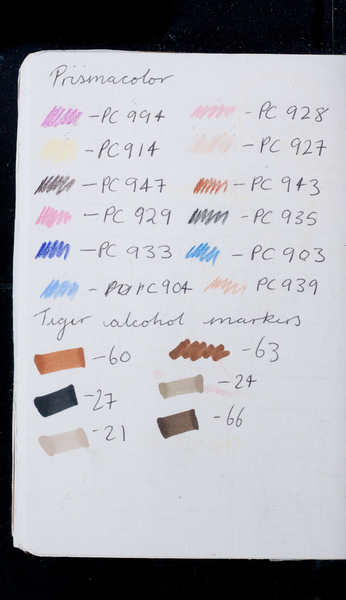 Prismacolor
-PC 994 -PC 928
-PC914 -PC 927
-PC947 -PC 943
-PC 929 -PC 935
-PC 933 -PC 903
-PC 904 PC939
Tiger alcohol markers
-60 -63
-27 -24
-21 -66